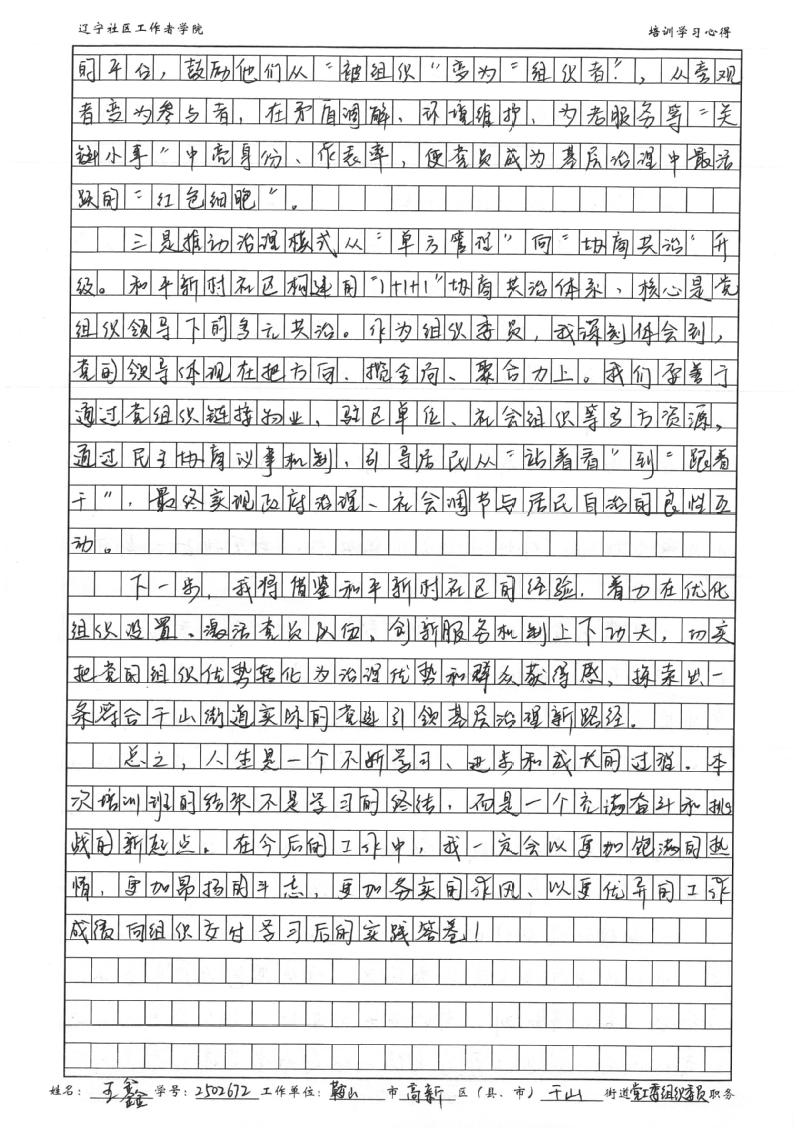 辽宁社区工作者学院 培训学习心得
的平台，鼓励他们从“被组织”变为“组织者”，从旁观
者变为参与者，在矛盾调解、环境维护、为老服务等“关
键小事”中亮身份、作表率，使党员成为基层治理中最活
跃的“红色细胞”。
三是推动治理模式从“单方管理”向“协商共治”升
级。和平新村社区构建的“1+1+1”协商共治体系，核心是党
组织领导下的多元共治。作为组织委员，我深刻体会到，
党的领导体现在把方向、揽全局、聚合力上。我们要善于
通过党组织链接物业、驻区单位、社会组织等多方资源，
通过民主协商议事机制，引导居民从“站着看”到“跟着
干”，最终实现政府治理、社会调节与居民自治的良性互
动。
下一步，我将借鉴和平新村社区的经验，着力在优化
组织设置、激活党员队伍、创新服务机制上下功夫，切实
把党的组织优势转化为治理优势和群众获得感，探索出一
条符合千山街道实际的党建引领基层治理新路径。
总之，人生是一个不断学习、进步和成长的过程。本
次培训班的结束不是学习的终结，而是一个充满奋斗和挑
战的新起点。在今后的工作中，我一定会以更加饱满的热
情，更加昂扬的斗志，更加务实的作风、以更优异的工作
成绩向组织交付学习后的实践答卷！
姓名：王鑫 学号：2502672 工作单位：鞍山 市 高新 区（县、市） 千山 街道党工委组织委员职务